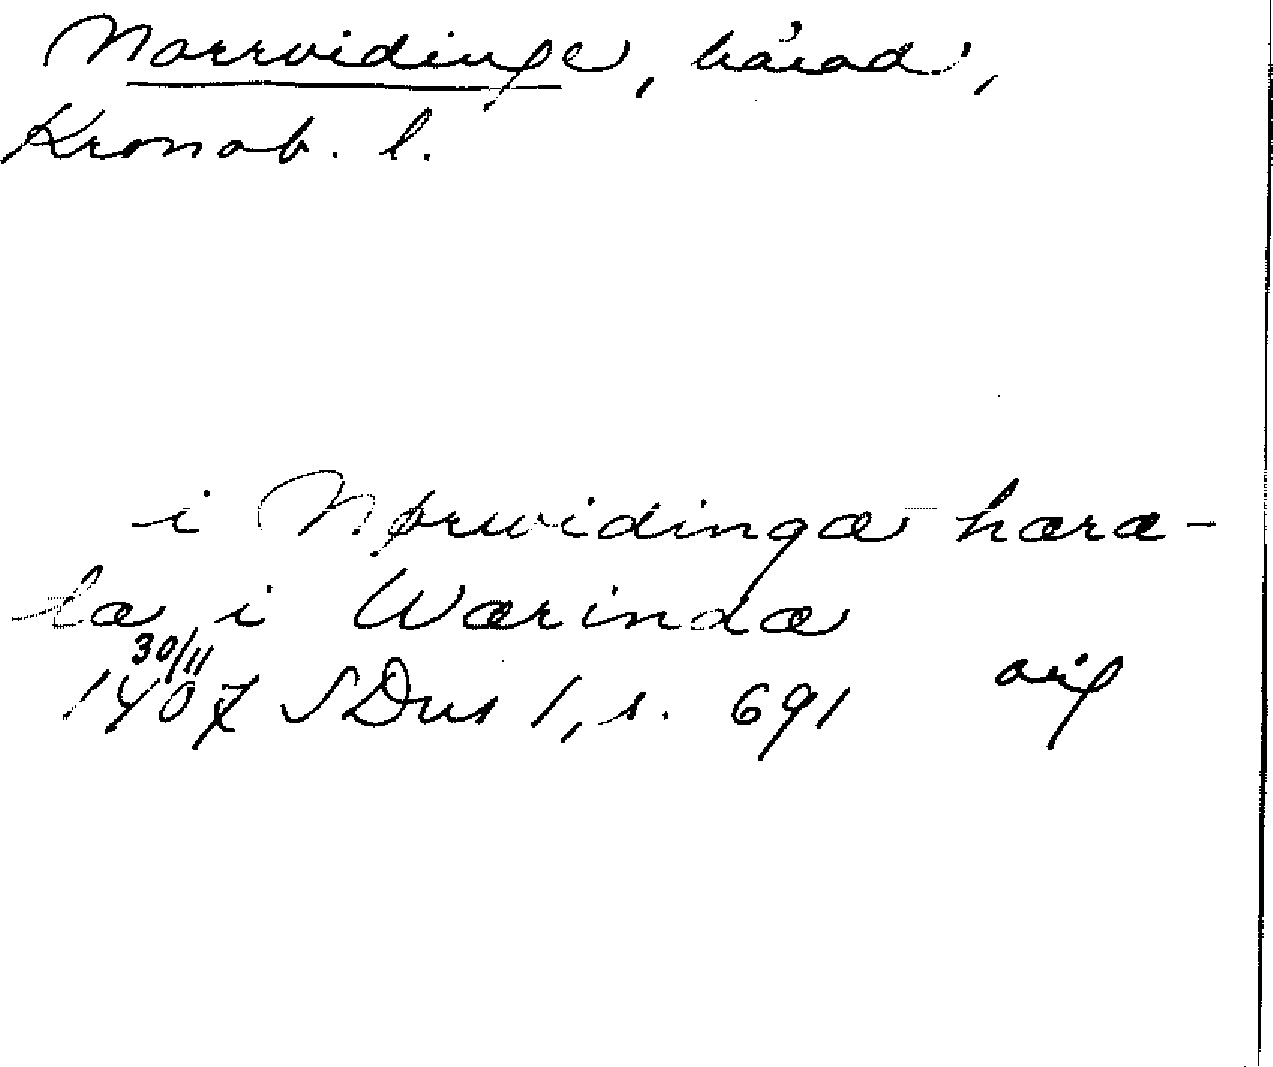 Norrvidinge, härad,
Kronob. l.
i Nørwidingæ hæra-
dæ i Wærindæ
30/11
1407 SDns 1, s. 691 orig